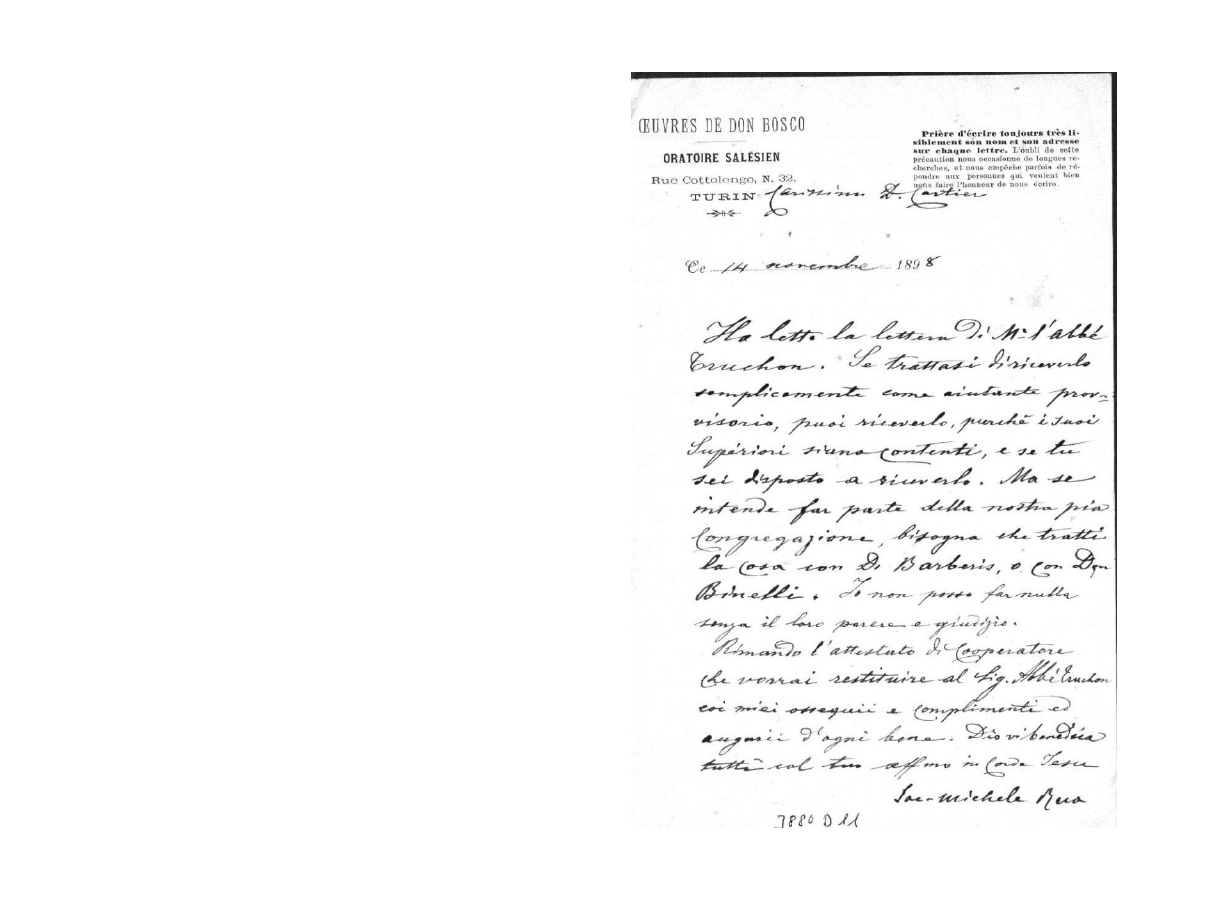 ŒUVRES DE DON BOSCO
ORATOIRE SALÉSIEN
Rue Cottolengo, N. 32.
TURIN
Prière d'écrire toujours très li-
siblement son nom et son adresse
sur chaque lettre. L'oubli de cette
précaution nous occasionne de longues re-
cherches, et nous empêche parfois de ré-
pondre aux personnes qui veulent bien
nous faire l'honneur de nous écrire.
Carissimo D. Cartier
Ce 14 novembre 1898
Ho letto la lettera di Mr l'abbé
Truchon. Se trattasi di riceverlo
semplicemente come aiutante prov-
visorio, puoi riceverlo, purchè i suoi
Supériori siano contenti, e se tu
sei disposto a riceverlo. Ma se
intende far parte della nostra pia
Congregazione, bisogna che tratti
la cosa con D. Barberis, o con Don
Binelli. Io non posso far nulla
senza il loro parere e giudizio.
Rimando l'attestato di Cooperatore
che vorrai restituire al Sig. Abbé Truchon
coi miei ossequii e complimenti ed
augurii d'ogni bene. Dio vi benedica
tutti col tuo affmo in Corde Jesu
Sac. Michele Rua
3880 D 11